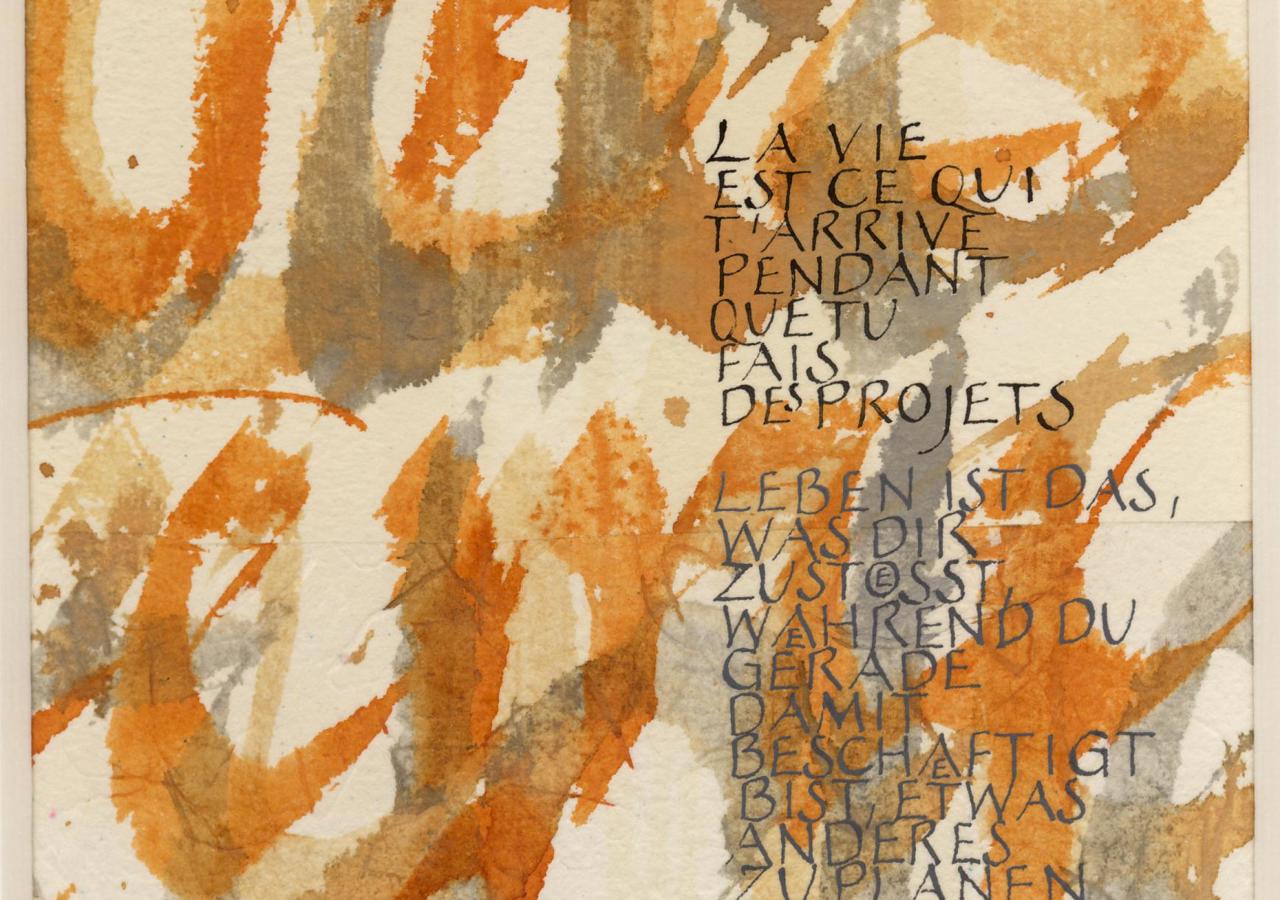 LA VIE
EST CE QUI
T'ARRIVE
PENDANT
QUE TU
FAIS
DES PROJETS
LEBEN IST DAS,
WAS DIR
ZUSTOESST,
WAEHREND DU
GERADE
DAMIT
BESCHAEFTIGT
BIST, ETWAS
ANDERES
ZU PLANEN